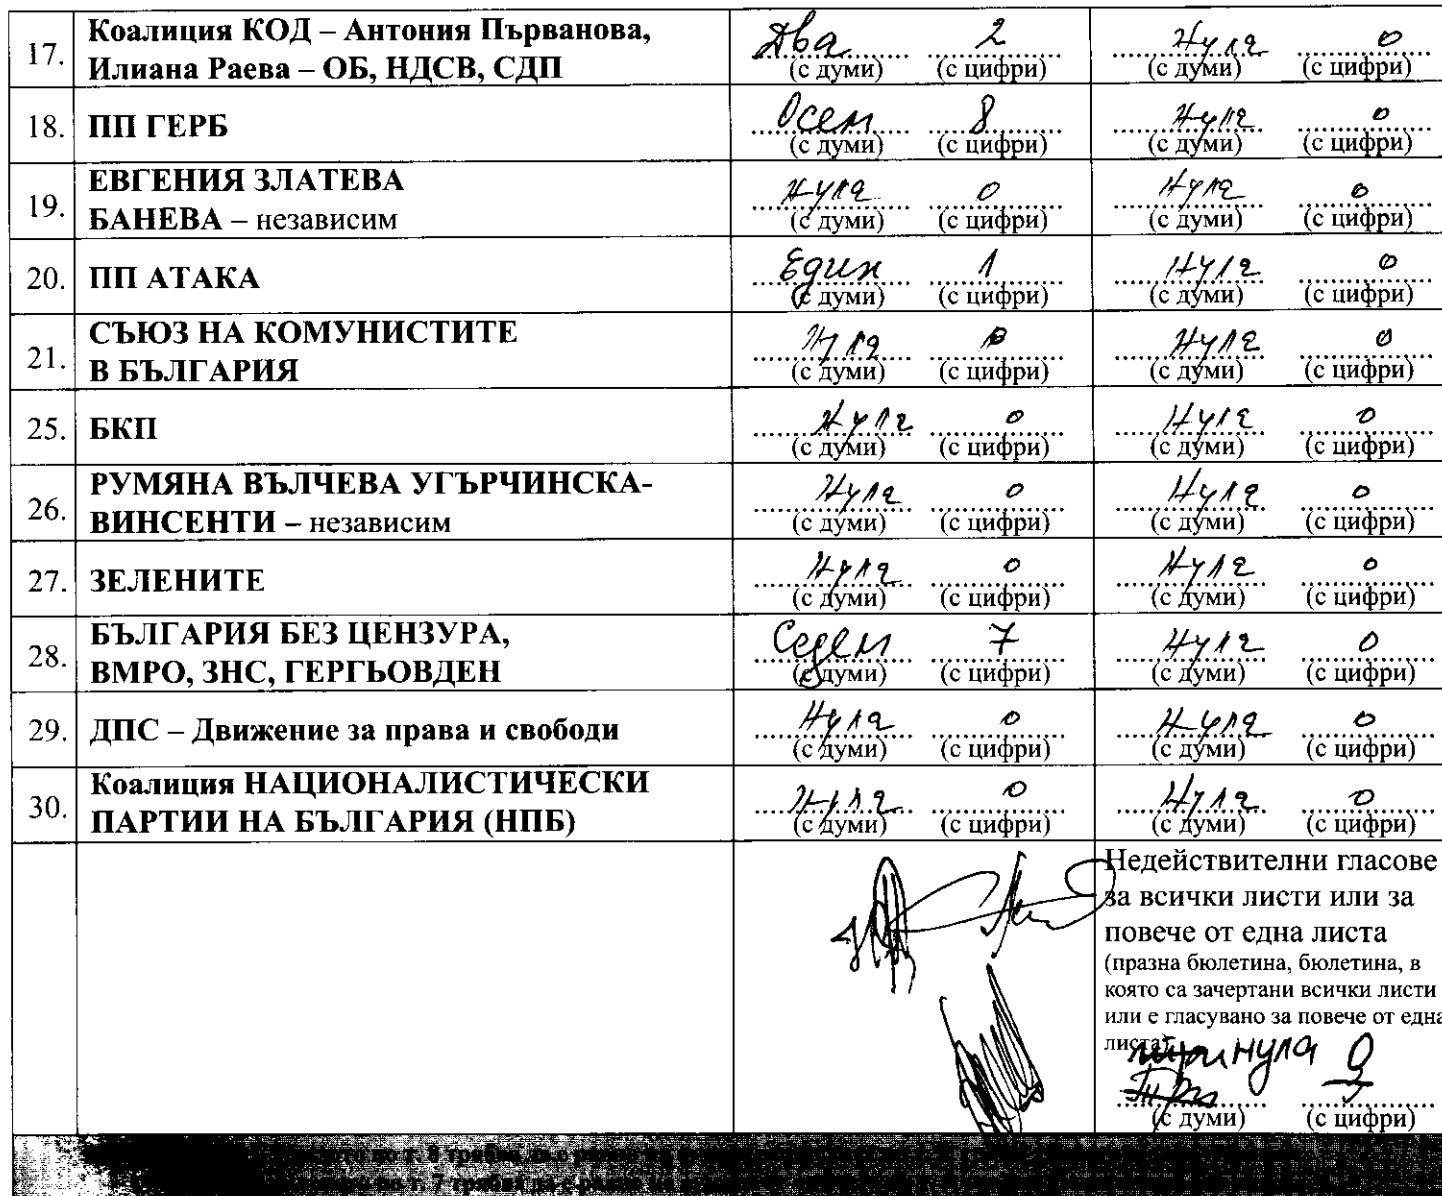 17. Коалиция КОД – Антония Първанова, Илиана Раева – ОБ, НДСВ, СДП Два (с думи) 2 (с цифри) Нула (с думи) 0 (с цифри)
18. ПП ГЕРБ Осем (с думи) 8 (с цифри) Нула (с думи) 0 (с цифри)
19. ЕВГЕНИЯ ЗЛАТЕВА БАНЕВА – независим Нула (с думи) 0 (с цифри) Нула (с думи) 0 (с цифри)
20. ПП АТАКА Един (с думи) 1 (с цифри) Нула (с думи) 0 (с цифри)
21. СЪЮЗ НА КОМУНИСТИТЕ В БЪЛГАРИЯ Нула (с думи) 0 (с цифри) Нула (с думи) 0 (с цифри)
25. БКП Нула (с думи) 0 (с цифри) Нула (с думи) 0 (с цифри)
26. РУМЯНА ВЪЛЧЕВА УГЪРЧИНСКА-ВИНСЕНТИ – независим Нула (с думи) 0 (с цифри) Нула (с думи) 0 (с цифри)
27. ЗЕЛЕНИТЕ Нула (с думи) 0 (с цифри) Нула (с думи) 0 (с цифри)
28. БЪЛГАРИЯ БЕЗ ЦЕНЗУРА, ВМРО, ЗНС, ГЕРГЬОВДЕН Седем (с думи) 7 (с цифри) Нула (с думи) 0 (с цифри)
29. ДПС – Движение за права и свободи Нула (с думи) 0 (с цифри) Нула (с думи) 0 (с цифри)
30. Коалиция НАЦИОНАЛИСТИЧЕСКИ ПАРТИИ НА БЪЛГАРИЯ (НПБ) Нула (с думи) 0 (с цифри) Нула (с думи) 0 (с цифри)
Недействителни гласове
за всички листи или за
повече от една листа
(празна бюлетина, бюлетина, в
която са зачертани всички листи
или е гласувано за повече от една
листа)
нула 0
(с думи) (с цифри)
по т. 8 трябва да е
по т. 7 трябва да е